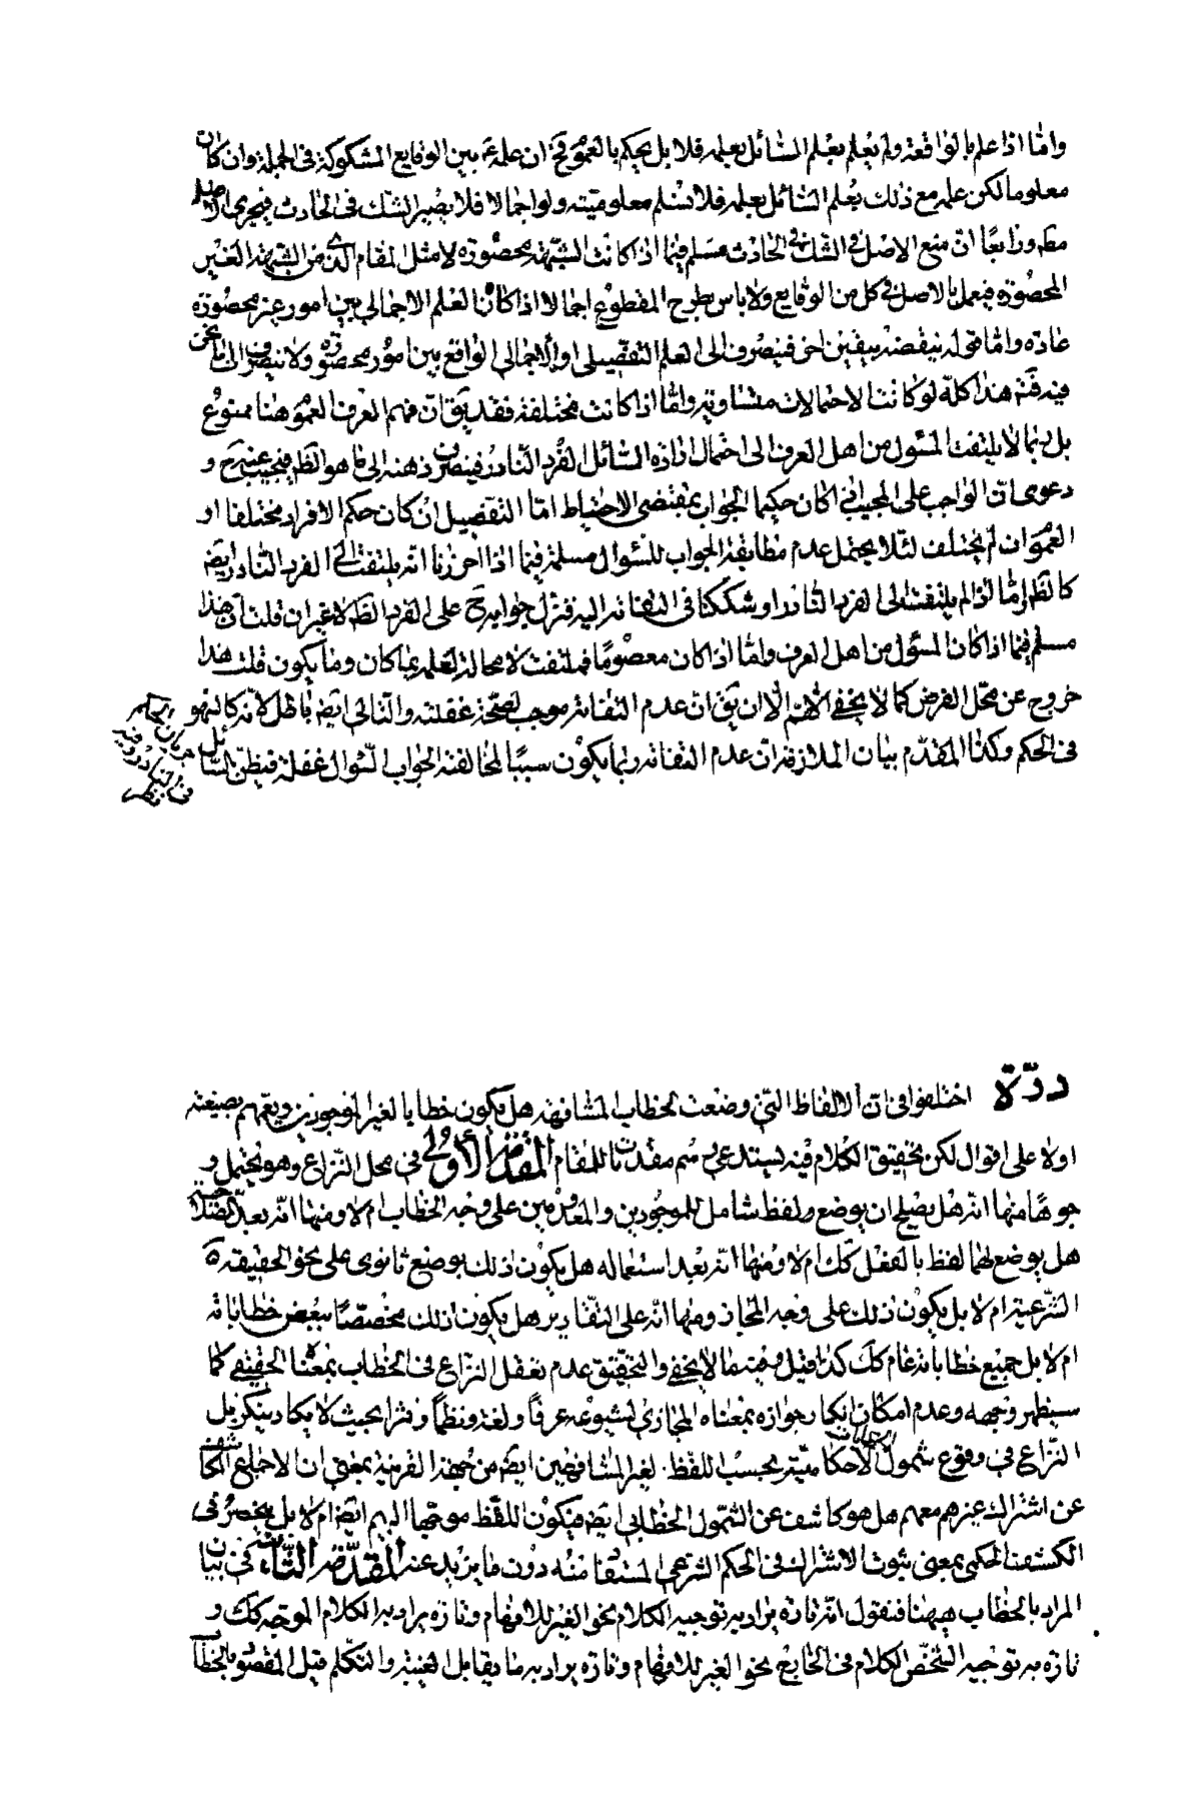 وامّا اذا علم بالواقعة ولم يعلم بعلم السّائل بعلمه فلا بل يحكم بالعموم فح ان علمه بين الوقايع المشكوكة فى الجملة وان كان
معلوما لكن علمه مع ذلك بعلم السّائل بعلمه فلا نسلم معلوميّته ولو اجمالا فلا يصير الشك فى الحادث فيجرى الاصل
مط ورابعًا انّ منع الاصل فى الشك فى الحادث مسلم فيما اذا كانت الشبهة محصورة لا مثل المقام الذى من الشبهة الغير
المحصورة فيعمل بالاصل فى كل من الوقايع ولا باس بطرح المقطوع اجمالا اذا كان العلم الاجمالى بين امور غير محصورة
عادة وامّا قوله ينقضه بيقين اخر فينصرف الى العلم التفصيلى او الاجمالى الواقع بين امور محصورة ولا ينصرف الى ما نحن
فيه فتم هذا كلّه لو كانت الاحتمالات متساوية وامّا اذا كانت مختلفة فقد يق انّ فهم العرف العموم هنا ممنوع
بل ربّما لا يلتفت المسئول من اهل العرف الى احتمال ارادة السّائل الفرد النّادر فينصرف ذهنه الى ما هو الظ فيجيب عنه ح و
دعوى انّ الواجب على المجيب اذا كان حكيما الجواب بمقتضى الاحتياط امّا التفصيل ان كان حكم الافراد مختلفا او
العموم ان لم يختلف لئلا يحتمل عدم مطابقة الجواب للسّئوال مسلمة فيما اذا احرزنا انّه يلتفت الى الفرد النّادر ايضً
كالظ وامّا اذا لم يلتفت الى الفرد النّادر او شككنا فى التفاته اليه فنزل جوابه ح على الفرد الظ لا غير ان قلت انّ هذا
مسلم فيما اذا كان المسؤل من اهل العرف وامّا اذا كان معصومًا فملتفت لا محالة لعلمه بما كان وما يكون قلت هذا
خروج عن محّل الفرض كما لا يخفى اللّهم الّا ان يق انّ عدم التفاته موجب لصحّة غفلته والتّالى ايضً باطل لانّه كالسّهو
فى الحكم وكذا المقدّم بيان الملازمة انّ عدم التفاته ربّما يكون سببًا لمخالفة الجواب السّئوال غفلة فيظن السّائل
جريان الحكم
فى النّادر وفيه
نظر
درّة اختلفوا فى انّ الالفاظ الّتى وضعت لخطاب المشافهة هل يكون خطابا لغير الموجودين ويعمّهم بصيغته
اولا على اقوال لكن تحقيق الكلام فيه يستدعى رسم مقدّمات للمقام المقدّمة الأولى فى محل النّزاع وهو يحتمل و
جوهًا منها انّه هل يصلح ان يوضع لفظ شامل للموجودين والمعدومين على وجه الخطاب ام لا ومنها انّه بعد الصّلاحيّة
هل يوضع لهما لفظ بالفعل كك ام لا ومنها انّه بعد استعماله هل يكون ذلك بوضع ثانوى على نحو الحقيقة
الشّرعية ام لا بل يكون ذلك على وجه المجاز ومنها انّه على التّقادير هل يكون ذلك مخصّصًا ببعض خطاباته
ام لا بل جميع خطاباته عام كك كذا قيل وفيه ما لا يخفى والتحقيق عدم تعقل النزاع فى الخطاب بمعناه الحقيقى كما
سيظهر وجهه وعدم امكان انكار جوازه بمعناه المجازى لشيوعه عرفًا ولغة ونظمًا ونثرا بحيث لا يكاد ينكر بل
النّزاع فى وقوع شمول الاحكام بحسب اللفظ لغير المشافهين ايضً من جهة القرينة بمعنى ان الاجماع الكاشف
عن اشتراك غيرهم معهم هل هو كاشف عن الشّمول الخطابى ايضً فيكون اللّفظ موجّها اليهم ايضً ام لا بل ينحصر فى
الكشف الحكمى بمعنى ثبوت الاشتراك فى الحكم الشرعى المستفاد منه دون ما يزيد عنه المقدّمة الثّانية فى بيان
المراد بالخطاب هيهنا فنقول انّه تارة يراد به توجيه الكلام نحو الغير للافهام وتارة يراد به الكلام الموجّه كك و
تارة به توجيه الشّخص الكلام فى الخارج نحو الغير للافهام وتارة يراد به ما يقابل الغيبة والتكلم قيل المقصود بالخطاب